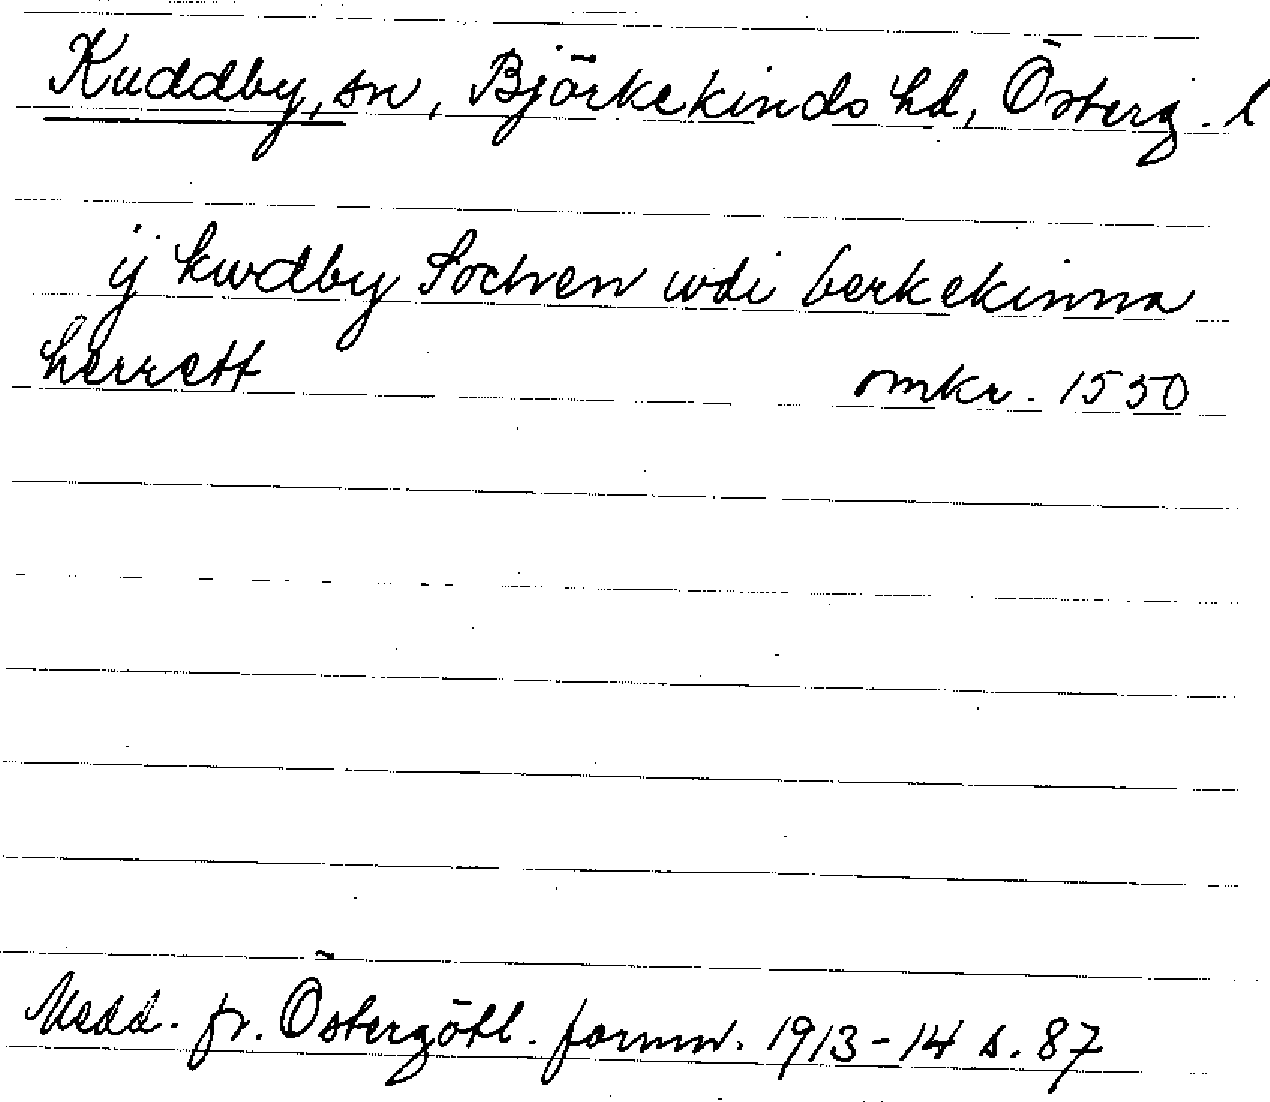 Kuddby, sn, Björkekinds hd, Österg. l
ij kwdby Sochen wdi berkekinna
herrett omkr. 1550
Medd. fr. Östergötl. fornm. 1913-14 s. 87